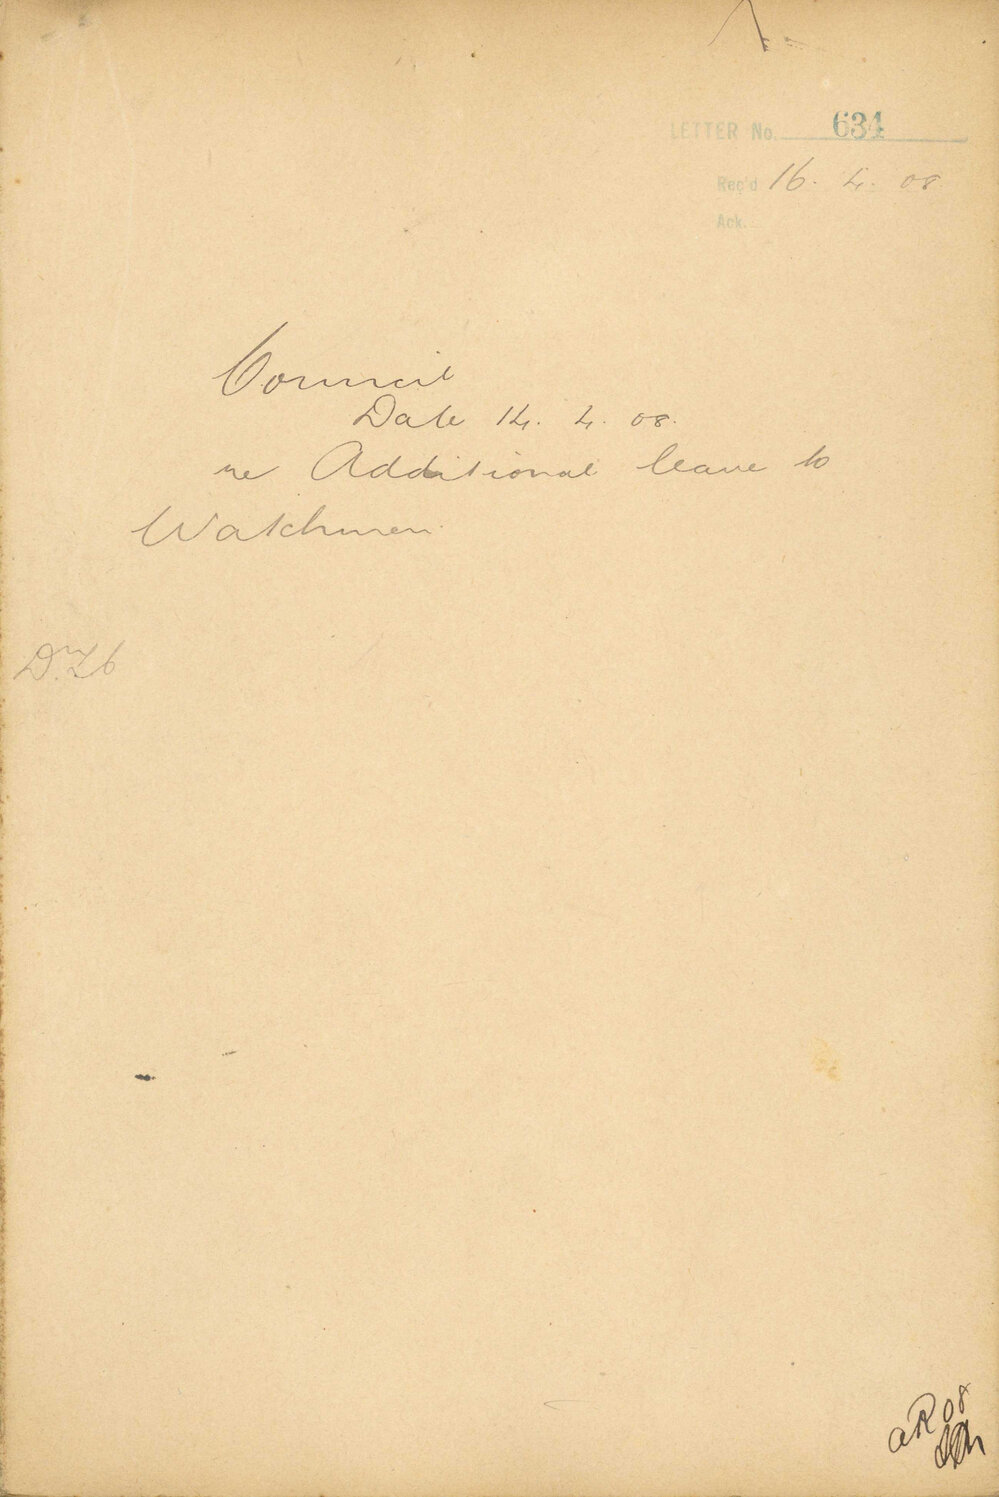 LETTER No. 634
Rec'd 16. 4. 08.
Ack.
Council
Date 14. 4. 08.
re Additional leave to
Watchmen.
08